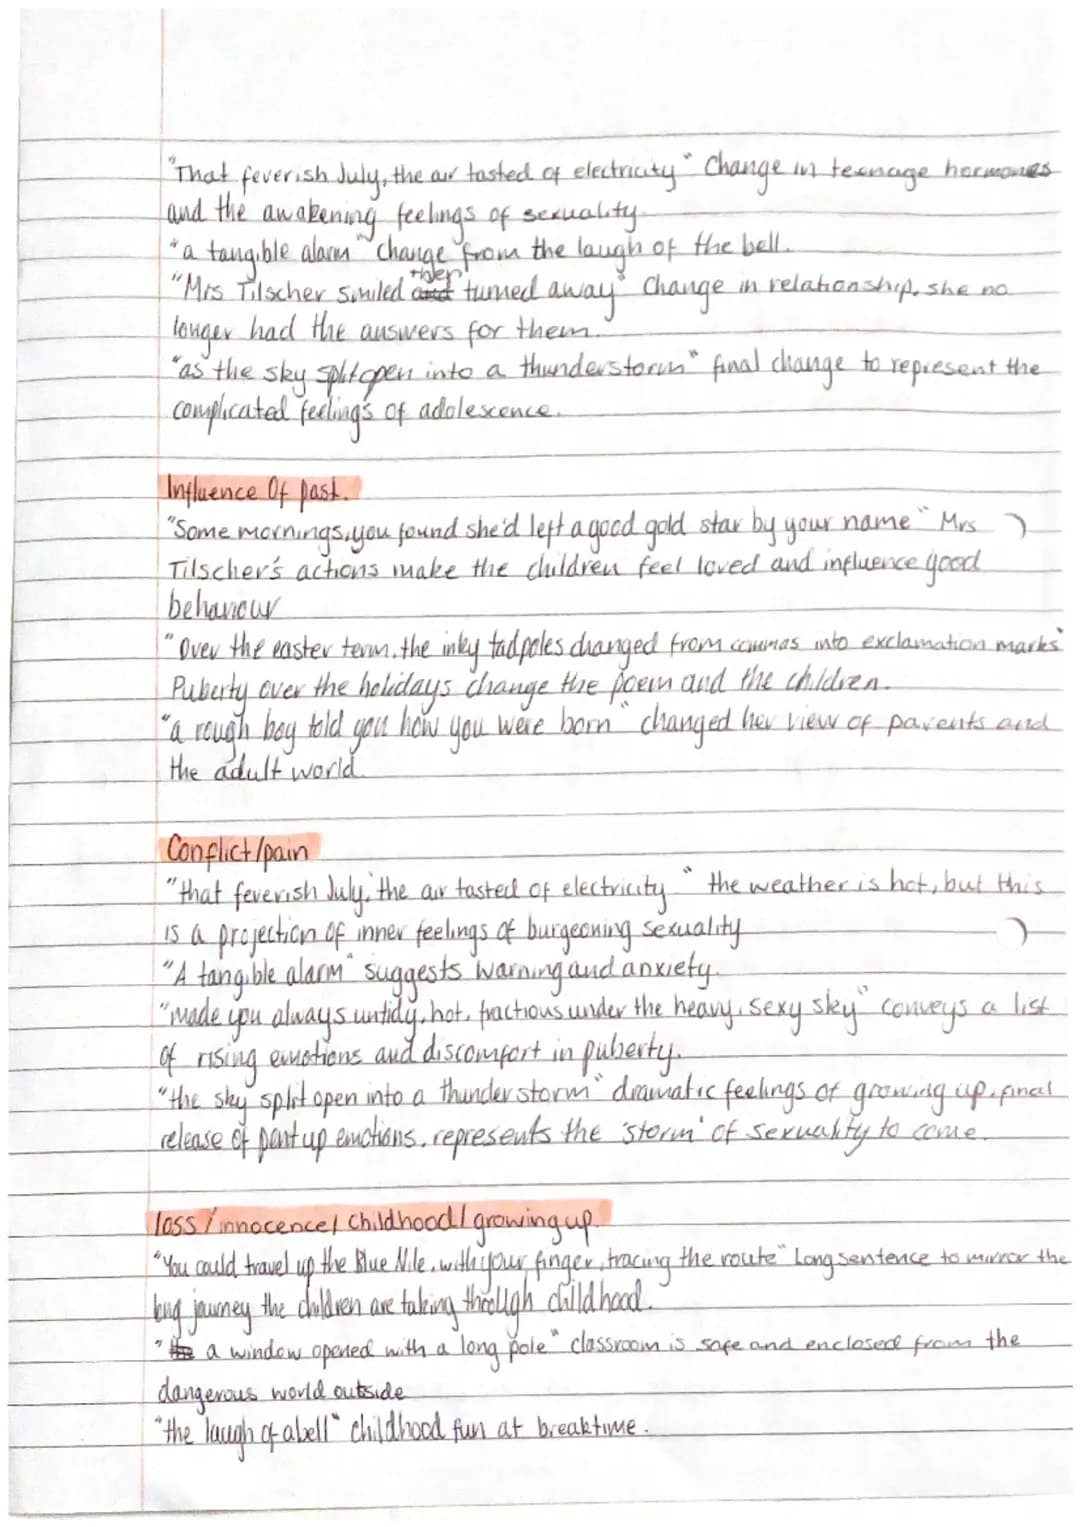 "That feverish July, the air tasted of electricity" Change in teenage hormones
and the awakening feelings of sexuality.
"a tangible alarm" change from the laugh of the bell.
"Mrs Tilscher smiled and then turned away" Change in relationship, she no
longer had the answers for them.
"as the sky split open into a thunderstorm" final change to represent the
complicated feelings of adolescence.
Influence Of past.
"Some mornings, you found she'd left a good gold star by your name" Mrs
Tilscher's actions make the children feel loved and influence good
behaviour
"Over the easter term, the inky tadpoles changed from commas into exclamation marks"
Puberty over the holidays change the poem and the children.
"a rough boy told you how you were born" changed her view of parents and
the adult world.
Conflict/pain
"that feverish July, the air tasted of electricity." the weather is hot, but this
is a projection of inner feelings of burgeoning sexuality
"A tangible alarm" suggests warning and anxiety.
"made you always untidy, hot, fractious under the heavy, sexy sky" conveys a list
of rising emotions and discomfort in puberty.
"the sky split open into a thunderstorm" dramatic feelings of growing up. final
release of pent up emotions. represents the 'storm' of sexuality to come.
loss / innocence / Childhood / growing up
"You could travel up the Blue Nile, with your finger, tracing the route" Long sentence to mirror the
long journey the children are taking through childhood.
"the a window opened with a long pole" classroom is safe and enclosed from the
dangerous world outside
"the laugh of a bell" childhood fun at breaktime.